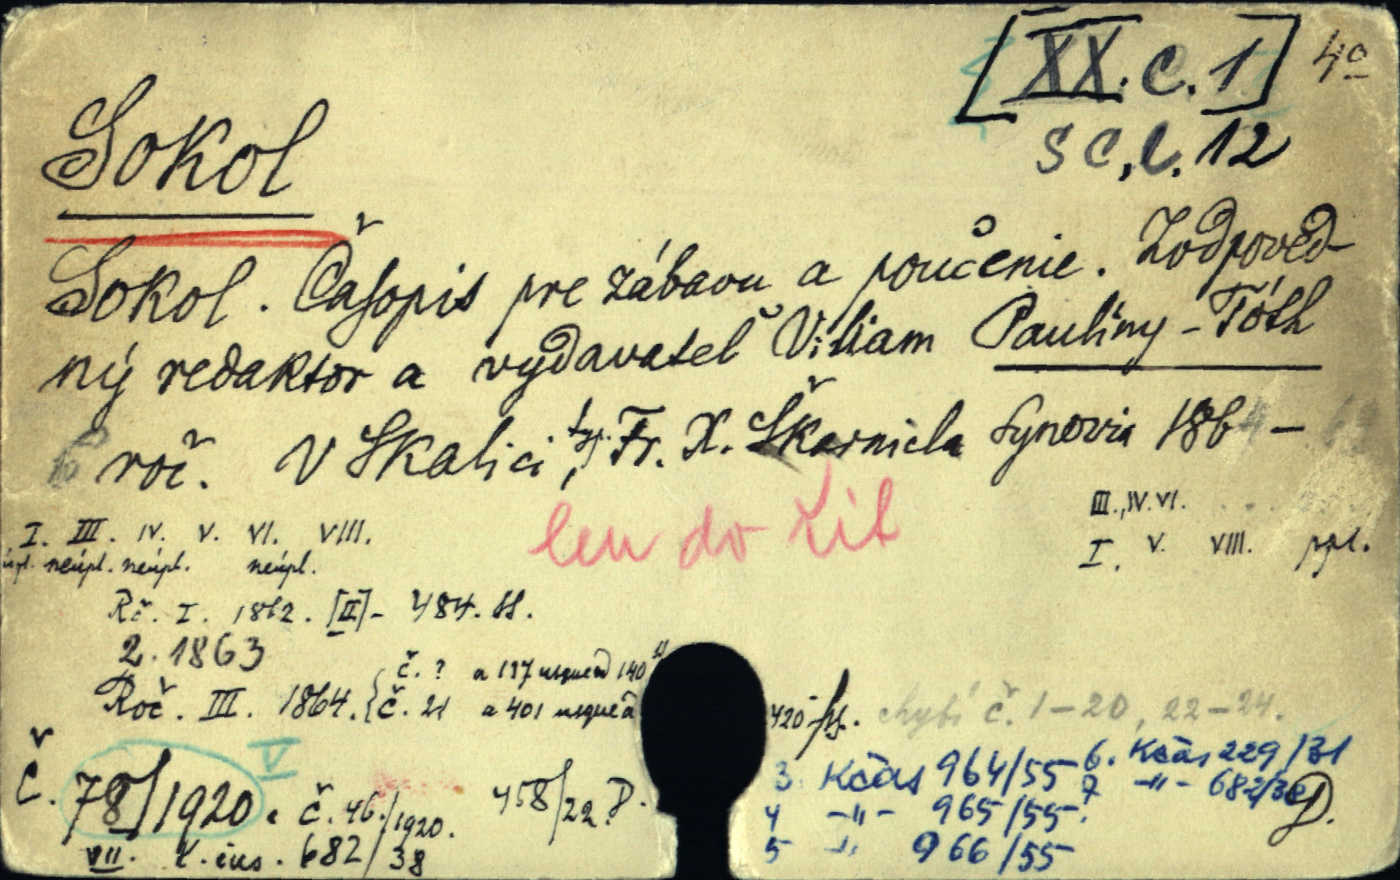 [XX. C. 1] 4º
S C, l. 12
Sokol
Sokol. Časopis pre zábavu a poučenie. Zodpoved-
ný redaktor a vydavateľ Viliam Pauliny-Tóth
roč. V Skalici, typ. Fr. X. Škarnicla Synovia 186 –
III., IV. VI.
I. III. IV. V. VI. VIII.
I. V. VIII.
neúpl. neúpl. neúpl.
len do Lit
Rč. I. 1862. [II] - 484. ss.
2. 1863
č. ? a 137 usque ad 140
Roč. III. 1864. { č. 21 a 401 usque a 420
chybí č. 1-20, 22-24.
V
Č. 78/1920. č. 46./1920. 458/22. D.
VII. 682/38
3. Kčas 964/55 6. Kčas 229/31
4 -"- 965/55. 7 -"- 682/38 D.
5 -"- 966/55